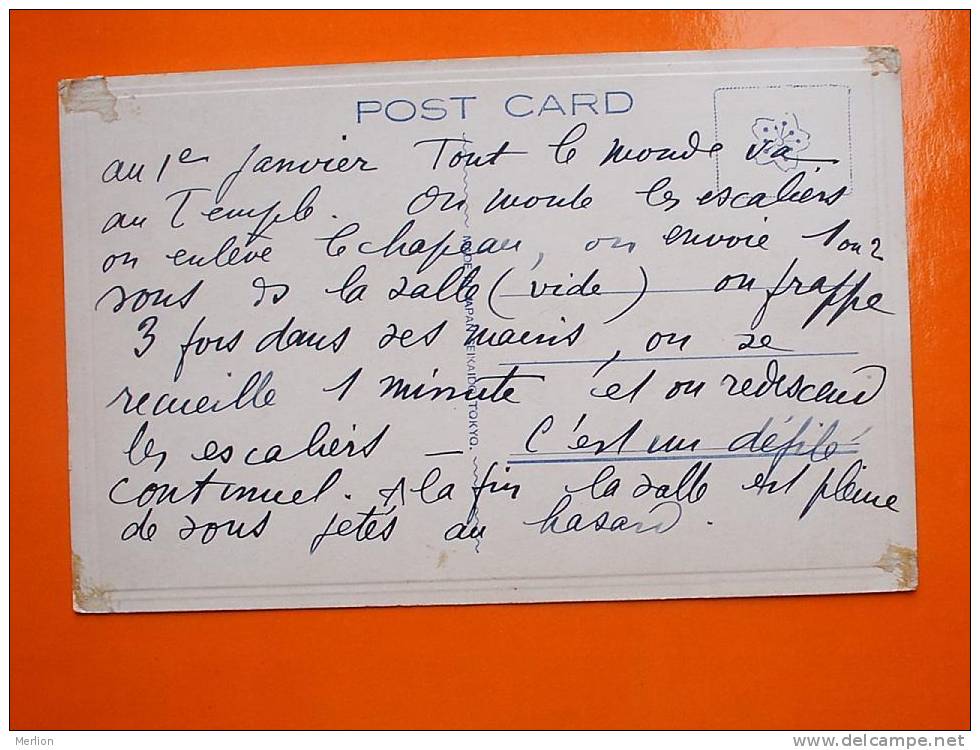 POST CARD
au 1er Janvier Tout le monde va
au Temple. On monte les escaliers
on enlève le chapeau, on envoie 1 ou 2
sous ds la salle (vide) on frappe
3 fois dans ses mains, on se
recueille 1 minute et on redescend
les escaliers — C'est un défilé
continuel. A la fin la salle est pleine
de sous jetés au hasard.
JAPAN SEIKAIDO, TOKYO.
Merlion
www.delcampe.net